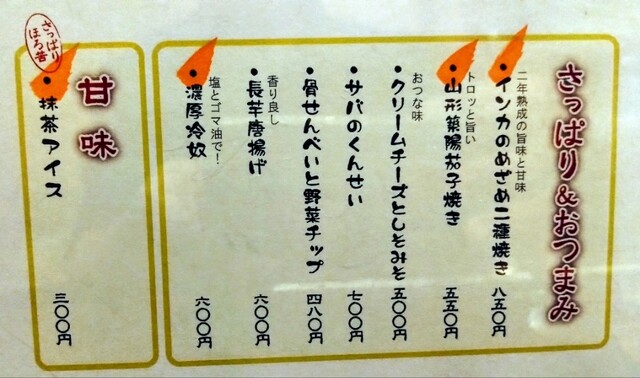 さっぱり&おつまみ
二年熟成の旨味と甘味
・インカのめざめ二種焼き 八五〇円
トロッと旨い
・山形築陽茄子焼き 五五〇円
おつな味
・クリームチーズとしそみそ 五〇〇円
・サバのくんせい 七〇〇円
・骨せんべいと野菜チップ 四八〇円
香り良し
・長芋唐揚げ 六〇〇円
塩とゴマ油で!
・濃厚冷奴 六〇〇円
さっぱり
ほろ苦
甘味
・抹茶アイス 三〇〇円